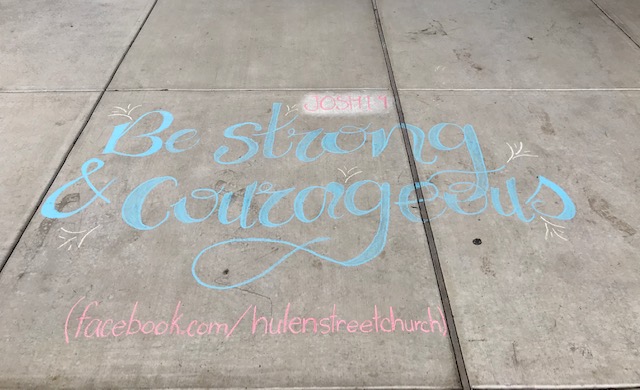 JOSH 1:9
Be strong
& courageous
(facebook.com/hulenstreetchurch)